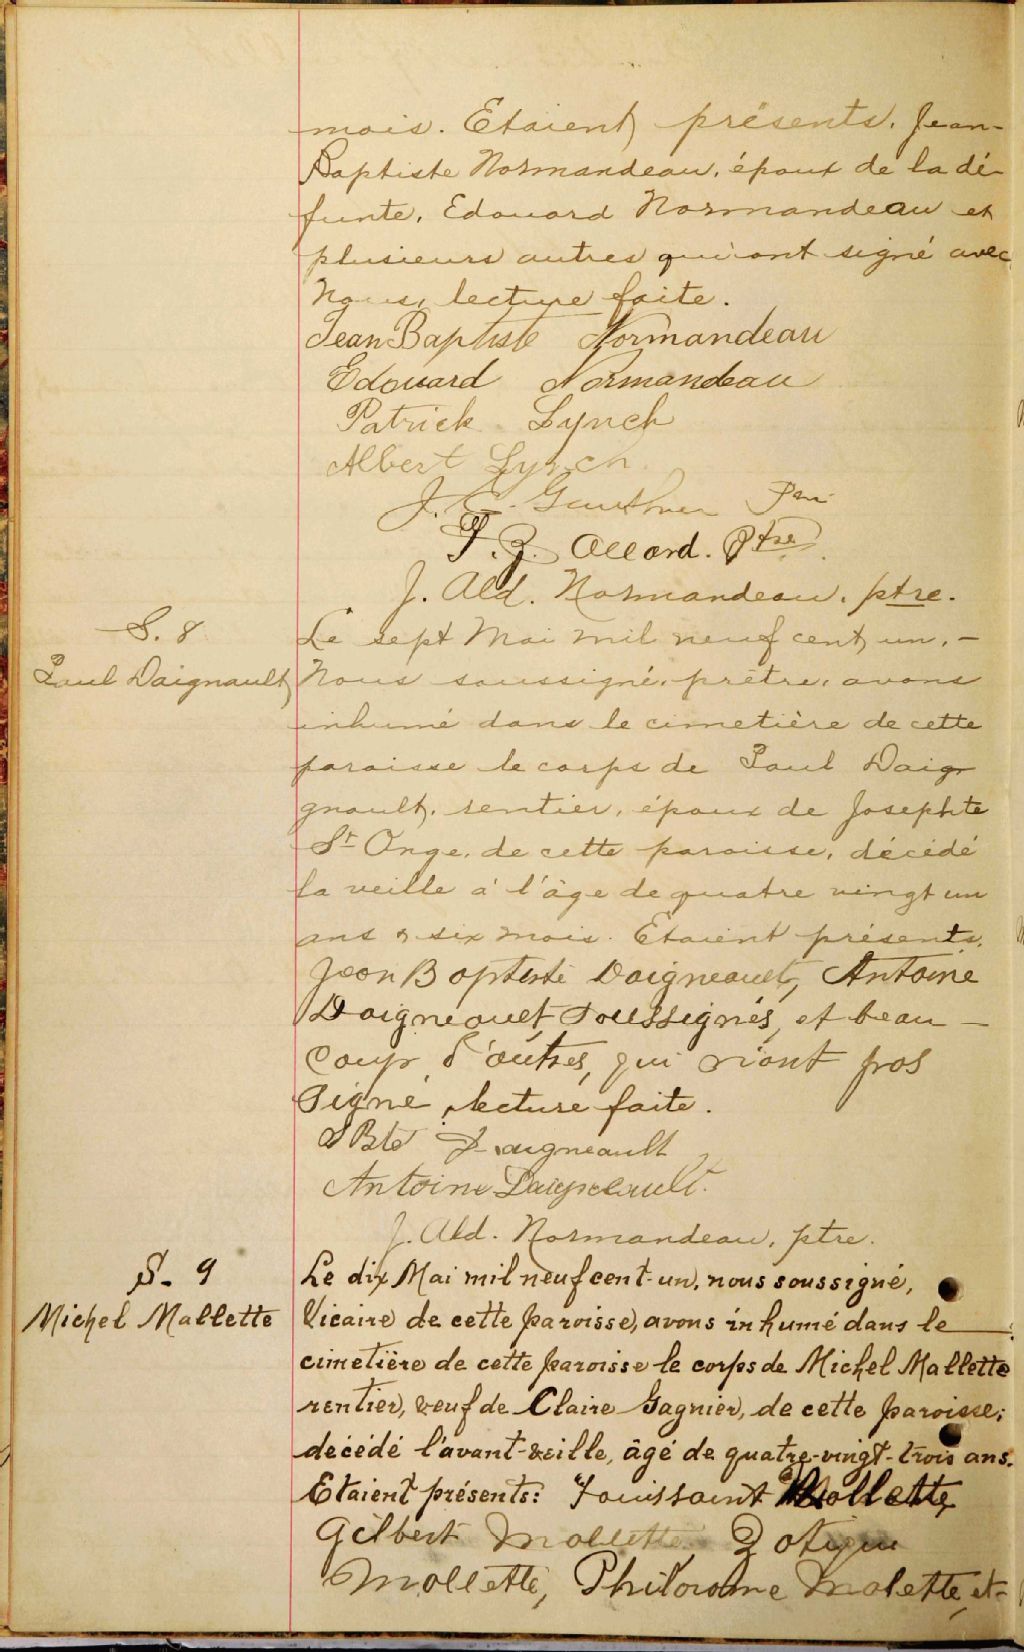 mois. Etaient présents, Jean-
Baptiste Normandeau, époux de la dé-
funte, Edouard Normandeau et
plusieurs autres qui ont signé avec
Nous, lecture faite.
Jean Baptiste Normandeau
Edouard Normandeau
Patrick Lynch
Albert Lynch
J. E. Gauthier Ptre
F. Z. Allard. Ptre
J. Ald. Normandeau, ptre.
S. 8
Paul Daignault
Le sept Mai mil neuf cent un, -
Nous soussigné, prêtre, avons
inhumé dans le cimetière de cette
paroisse le corps de Paul Daig
gnault, rentier, époux de Josephte
St Onge, de cette paroisse, décédé
la veille à l'âge de quatre vingt un
ans & six mois. Etaient présents,
Jean Baptiste Daigneault, Antoine
Daigneault Soussignés, et beau -
coup d'autres, qui n'ont pas
signé, lecture faite.
J Bte Daigneault
Antoine Daigneault.
J. Ald. Normandeau, ptre.
S. 9
Michel Mallette
Le dix Mai mil neuf cent-un, nous soussigné,
Vicaire de cette paroisse, avons inhumé dans le
cimetière de cette paroisse le corps de Michel Mallette
rentier, veuf de Claire Gagnier, de cette paroisse;
décédé l'avant-veille, âgé de quatre-vingt-trois ans.
Etaient présents: Touissaint Mallette,
Gilbert Mallette Zotique
Mallette, Philorome Malette, et-